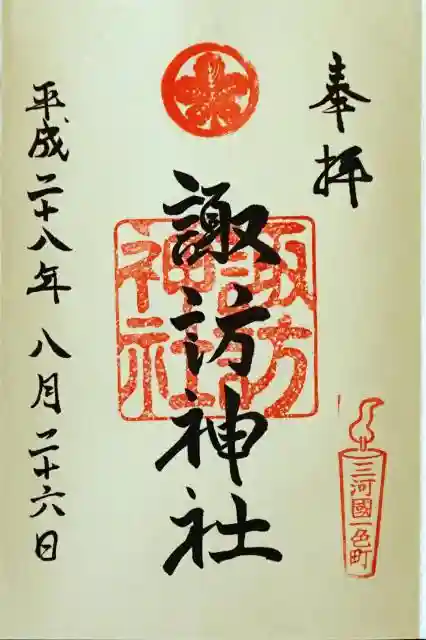 奉拝
三河國一色町
諏訪神社
諏訪神社
平成二十八年八月二十六日